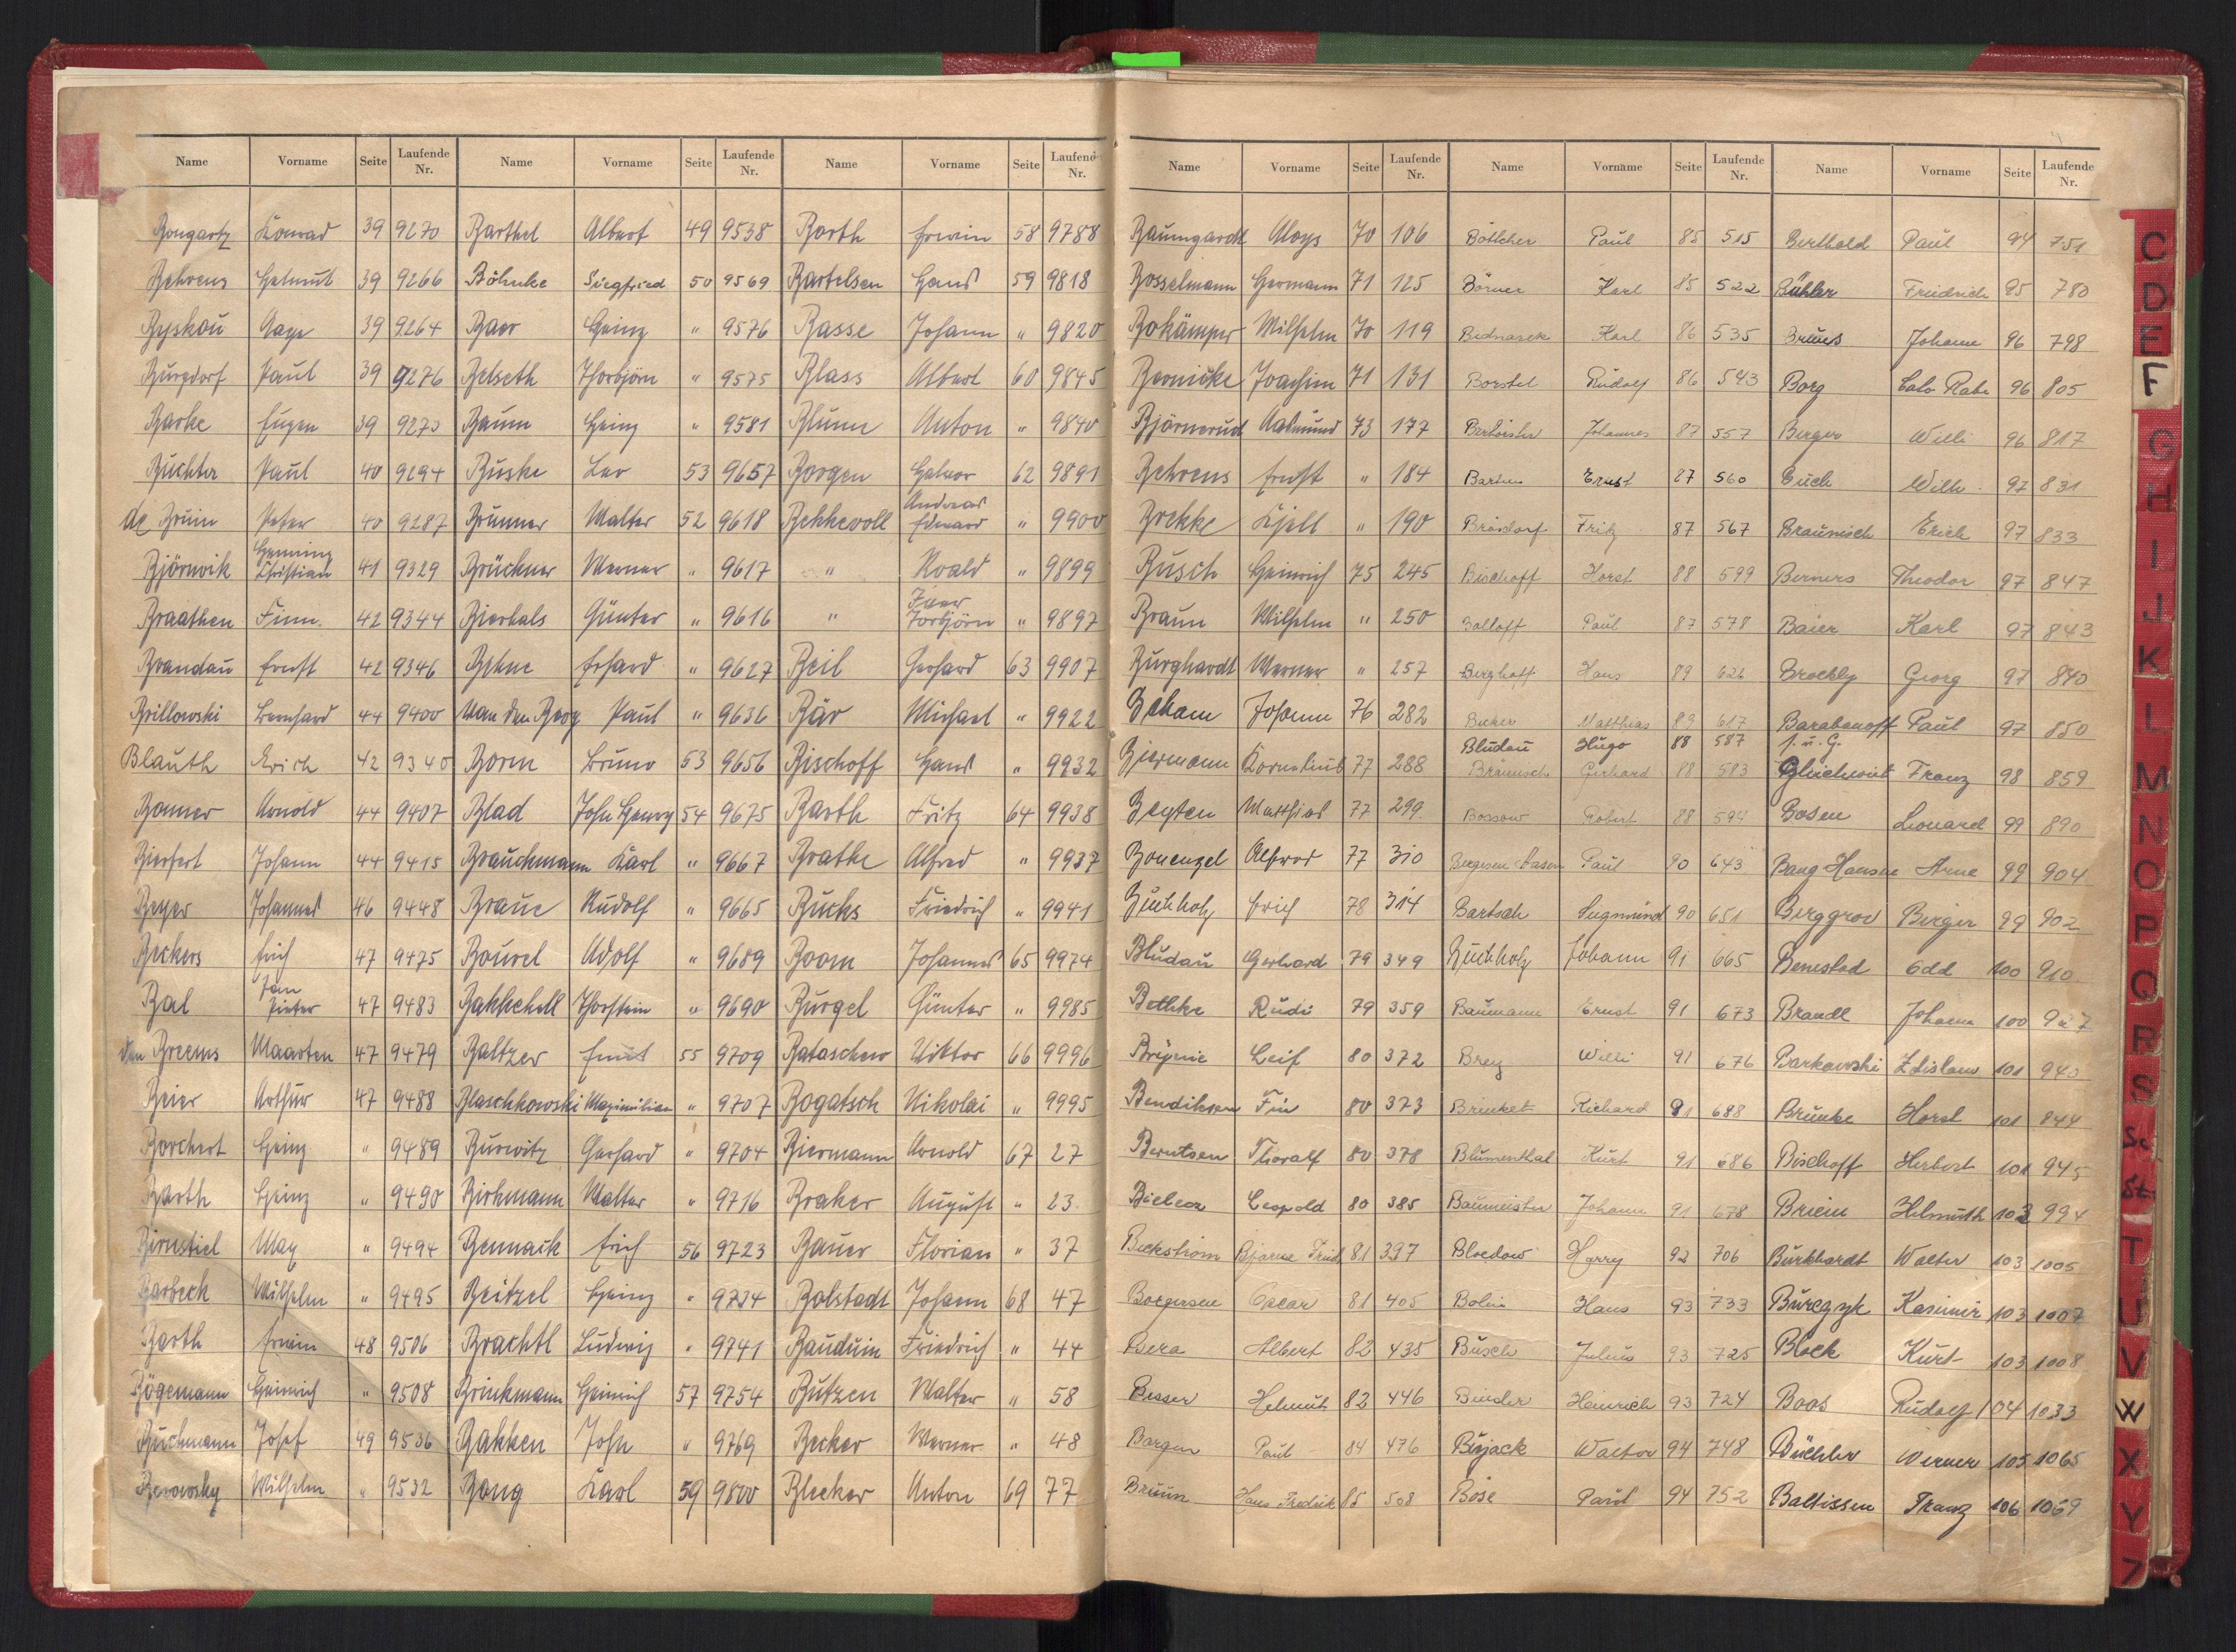 Name Vorname Seite Laufende Nr. Name Vorname Seite Laufende Nr. Name Vorname Seite Laufende Nr.
Bongartz Konrad 39 9270 Barthel Albert 49 9538 Barth Erwin 58 9788
Behrens Helmut 39 9266 Böhnke Siegfried 50 9569 Bartelsen Hans 59 9818
Byskou Aage 39 9264 Baer Heinz " 9576 Basse Johann " 9820
Burgdorf Paul 39 9276 Belseth Thorbjörn " 9575 Blass Albert 60 9845
Barke Eugen 39 9273 Baum Heinz " 9581 Blume Anton " 9840
Buchter Paul 40 9294 Buske Leo 53 9657 Borgen Halvor 62 9891
de Bruin Peter 40 9287 Brunner Walter 52 9618 Bekkevoll Andreas Edward " 9900
Björnvik Henning Christian 41 9329 Brückner Werner " 9617 " Roald " 9899
Braathen Finn. 42 9344 Bierhals Günter " 9616 " Iver Torbjörn " 9897
Brandau Ernst 42 9346 Behne Erhard " 9627 Beil Gerhard 63 9907
Brillowski Bernhard 44 9400 Van den Berg Paul " 9636 Bär Michael " 9922
Blauth Erich 42 9340 Borm Bruno 53 9656 Bischoff Hans " 9932
Bonner Arnold 44 9407 Blad John Henry 54 9675 Barth Fritz 64 9938
Bierfert Johann 44 9415 Brauckmann Karl " 9667 Brathe Alfred " 9937
Beyer Johannes 46 9448 Braue Rudolf " 9665 Bucks Friedrich " 9941
Beckers Erich 47 9475 Bauret Adolf " 9689 Boom Johannes 65 9974
Bal Jan Pieter 47 9483 Bakkehell Thorstein " 9690 Burgel Günter " 9985
den Breems Maarten 47 9479 Baltzer Ernst 55 9709 Bataschew Viktor 66 9996
Beier Arthur 47 9488 Blaschkowski Maximilian " 9707 Bogatsch Nikolai " 9995
Borchert Heinz " 9489 Burwitz Gerhard " 9704 Biermann Arnold 67 27
Barth Heinz " 9490 Birkmann Walter " 9716 Braker August " 23
Birnstiel Max " 9494 Bennack Erich 56 9723 Bauer Florian " 37
Barbeck Wilhelm " 9495 Beitzel Heinz " 9734 Bolstadt Johann 68 47
Barth Erwin 48 9506 Brachtl Ludwig " 9741 Bauduin Friedrich " 44
Bögemann Heinrich " 9508 Brinkmann Heinrich 57 9754 Butzen Walter " 58
Buchmann Josef 49 9536 Bakken John " 9769 Becker Werner " 48
Wilhelm " 9532 Bong Karl 59 9800 Blecker Anton 69 77
Name Vorname Seite Laufende Nr. Name Vorname Seite Laufende Nr. Name Vorname Seite Laufende Nr.
Baumgardt Aloys 70 106 Böttcher Paul 85 515 Berthold Paul 94 751
Bosselmann Hermann 71 125 Börner Karl 85 522 Bühler Friedrich 95 780
Bokämper Wilhelm 70 119 Bednarek Karl 86 535 Bruns Johann 96 798
Bernicke Joachim 71 131 Borstel Rudolf 86 543 Borg 96 805
Björnerud Aasmund 73 177 Johannes 87 557 Berger Willi 96 817
Behrens Ernst " 184 Ernst 87 560 Buch Willi 97 831
Brekke Kjell " 190 Brosdorf Fritz 87 567 Braunisch Erich 97 833
Busch Heinrich 75 245 Bischoff Horst 88 599 Berners Theodor 97 847
Braun Wilhelm " 250 Balloff Paul 87 578 Baier Karl 97 843
Burghardt Werner " 257 Berghoff Hans 89 626 Brockly Georg 97 840
Beham Johann 76 282 Becker Matthias 89 617 Barabanoff Paul 97 850
Bludau Hugo 88 587 f. u. G.
Biermann Kornelius 77 288 Bräunisch Gerhard 88 583 Franz 98 859
Beyten Matthias 77 299 Bossow Robert 88 594 Bosen Leonard 99 890
Bonengel Alfred 77 310 Paul 90 643 Bang Hansen Arne 99 904
Buchholz Erich 78 314 Bartsch Sugmund 90 651 Berggrov Birger 99 902
Bludau Gerhard 79 349 Buchholz Johann 91 665 Benestad Odd 100 910
Bethke Rudi 79 359 Baumann Ernst 91 673 Brandl Johann 100
Leif 80 372 Brey Willi 91 676 Barkowski Zdislaus 101 940
Bendiksen Fin 80 373 Brinket Richard 91 688 Brunke Horst 101 844
Berntsen Thoralf 80 378 Blumenthal Kurt 91 686 Bischoff Herbert 101 945
Leopold 80 385 Baumeister Johann 91 678 Briem Helmuth 103 994
Beckström Bjarne 81 397 Bloedow Harry 92 706 Burkhardt Walter 103 1005
Boegersen Oscar 81 405 Bolin Hans 93 733 Burczyk Kasimir 103 1007
Bera Albert 82 435 Busch Julius 93 725 Block Kurt 103 1008
Besser Helmut 82 446 Binder Heinrich 93 724 Boos Rudolf 104 1033
Bargen Paul 84 476 Bujack Walter 94 748 Büchler Werner 105 1065
Bruun Hans Fredrik 85 508 Böse Paul 94 752 Baltissen Franz 106 1069
C
D
E
F
G
H
I
J
K
L
M
N
O
P
Q
R
S
Sc
St
T
U
V
W
X
Y
Z